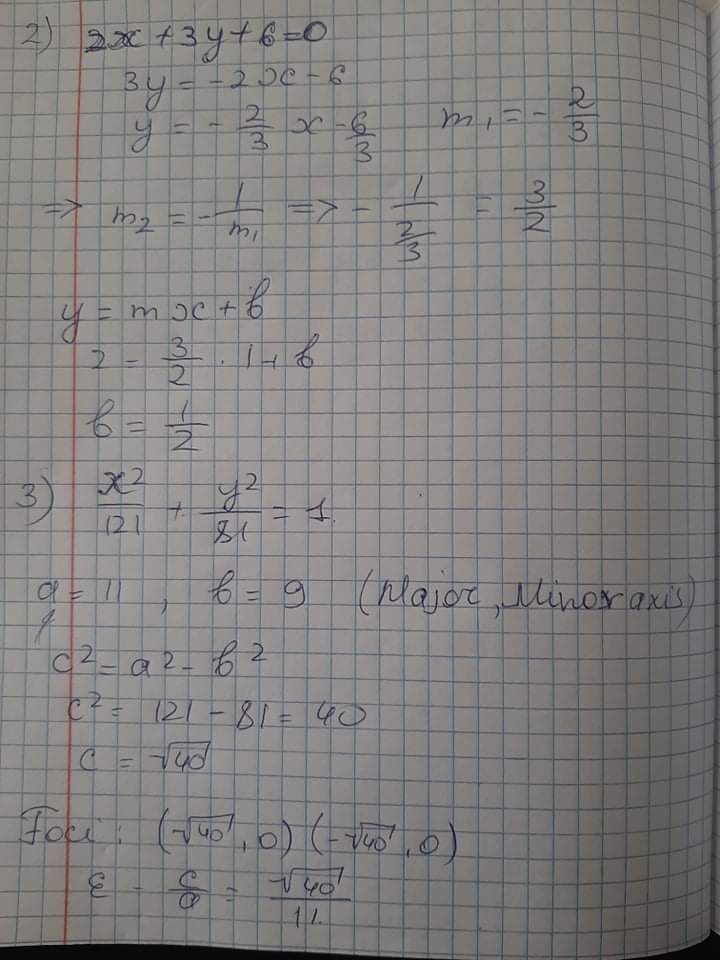 2) 2x + 3y + 6 = 0
3y = -2x - 6
y = - 2/3 x - 6/3 m₁ = - 2/3
=> m₂ = - 1/m₁ => - 1/(2/3) = 3/2
y = mx + b
2 = 3/2 · 1 + b
b = 1/2
3) x²/121 + y²/81 = 1.
a = 11 , b = 9 (Major, Minor axis)
c² = a² - b²
c² = 121 - 81 = 40
c = √40
Foci : (√40, 0) (-√40, 0)
ε - c/a = √40/11